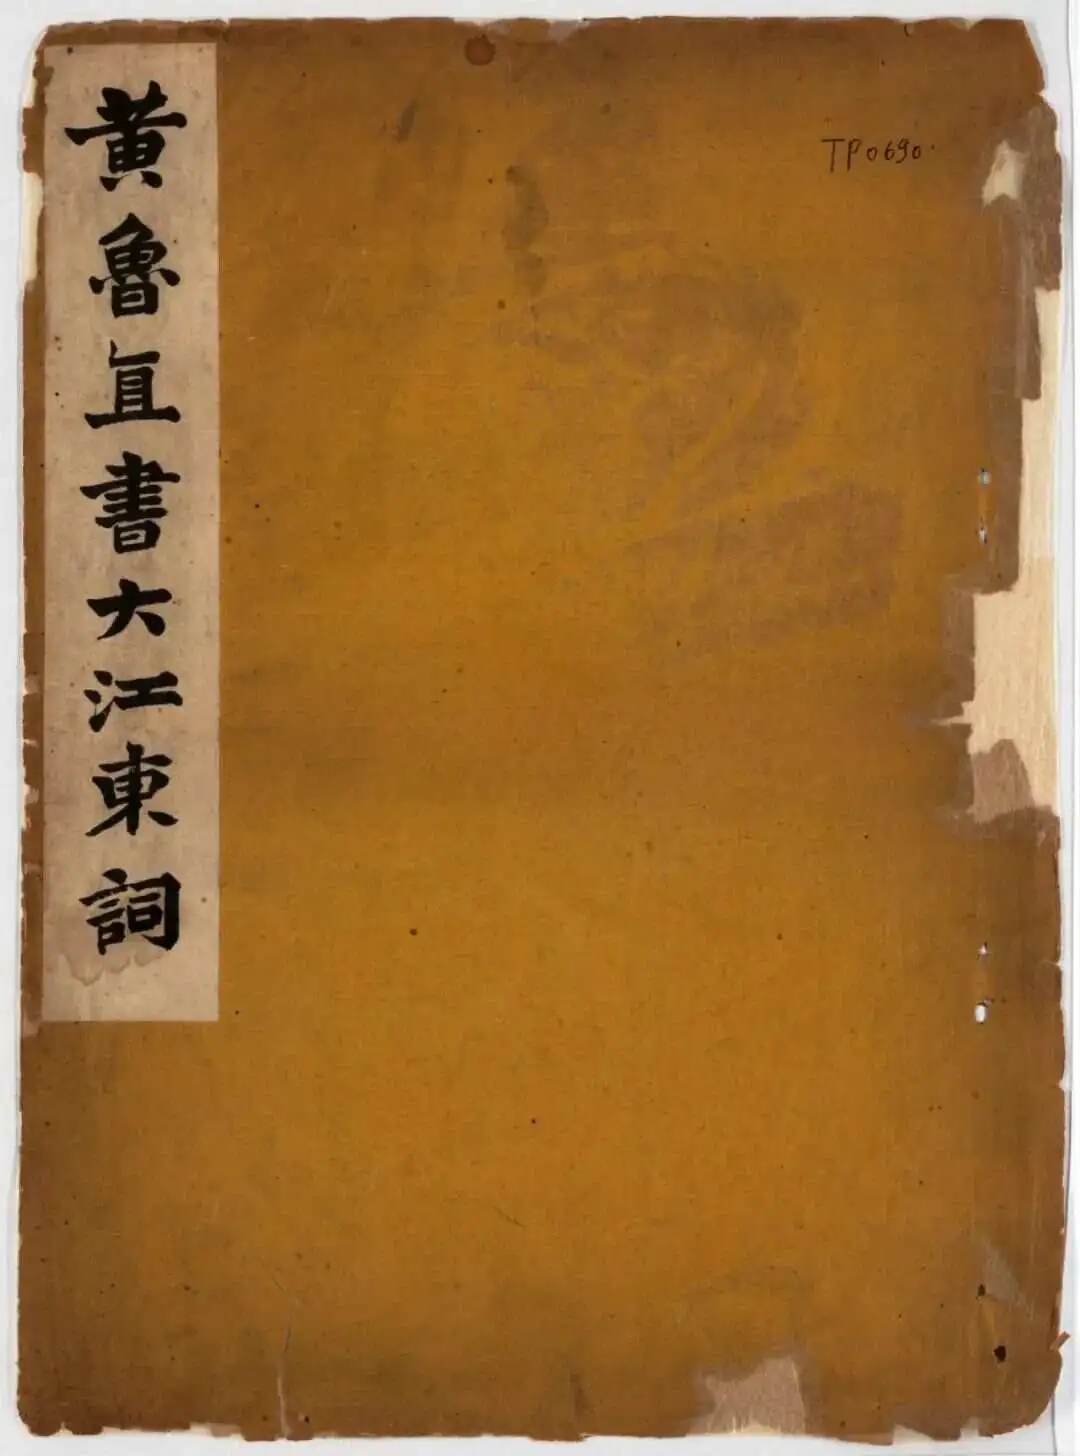 黃魯直書大江東詞
TP0690.